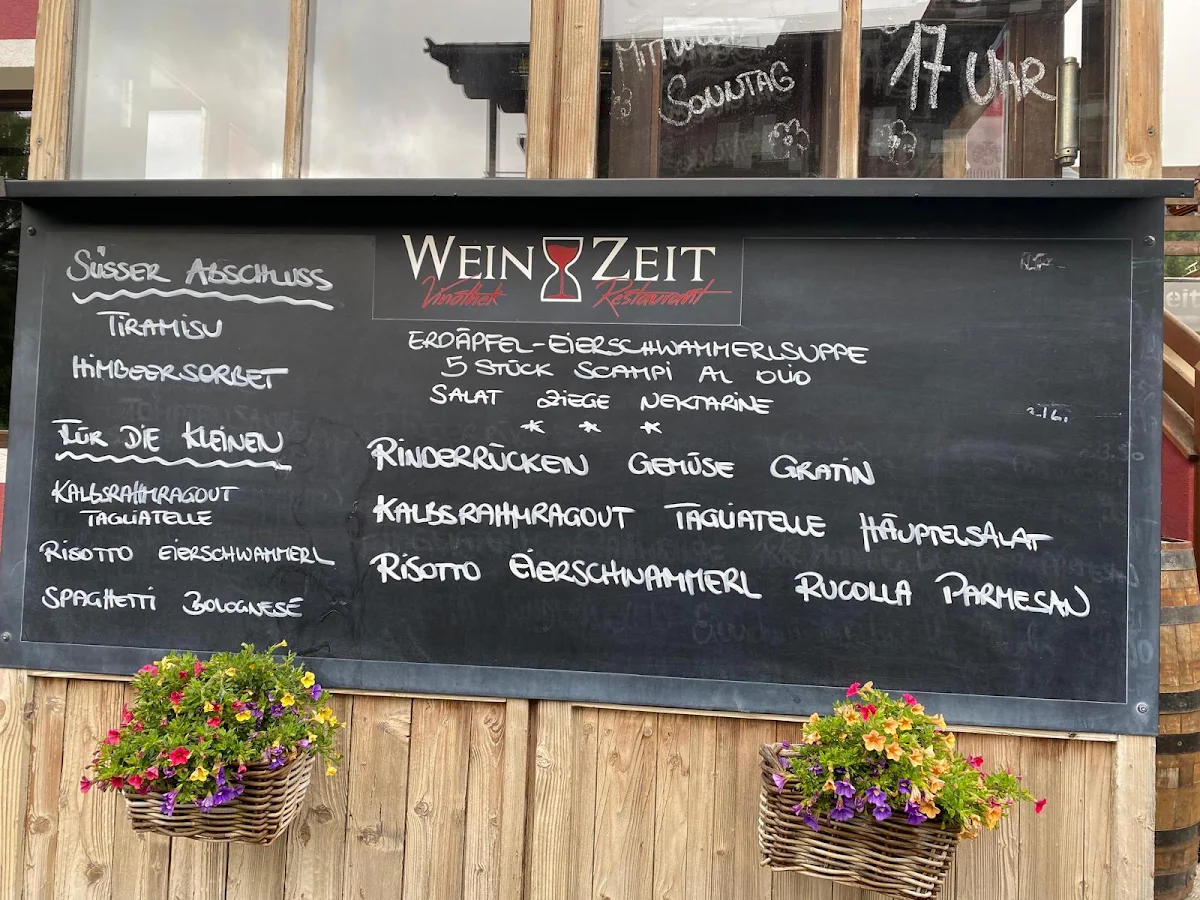 MITTWOCH
SONNTAG
17 UHR
WEIN ZEIT
Vinothek Restaurant
SÜSSER ABSCHLUSS
TIRAMISU
HIMBEERSORBET
FÜR DIE KLEINEN
KALBSRAHMRAGOUT
TAGLIATELLE
RISOTTO EIERSCHWAMMERL
SPAGHETTI BOLOGNESE
ERDÄPFEL-EIERSCHWAMMERLSUPPE
5 STÜCK SCAMPI AL OLIO
SALAT ZIEGE NEKTARINE
* * *
RINDERRÜCKEN GEMÜSE GRATIN
KALBSRAHMRAGOUT TAGLIATELLE HÄUPTELSALAT
RISOTTO EIERSCHWAMMERL RUCOLLA PARMESAN